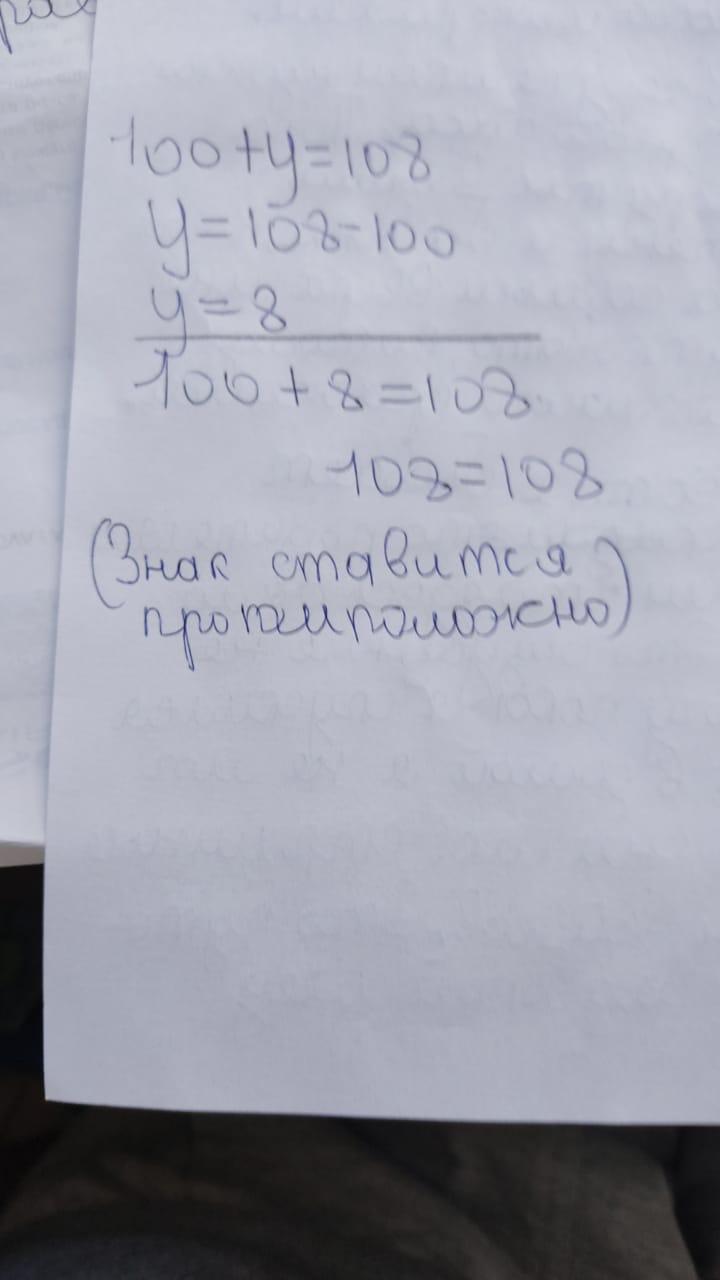 100+y=108
y=108-100
y=8
100+8=108
108=108
(Знак ставится
противположно)